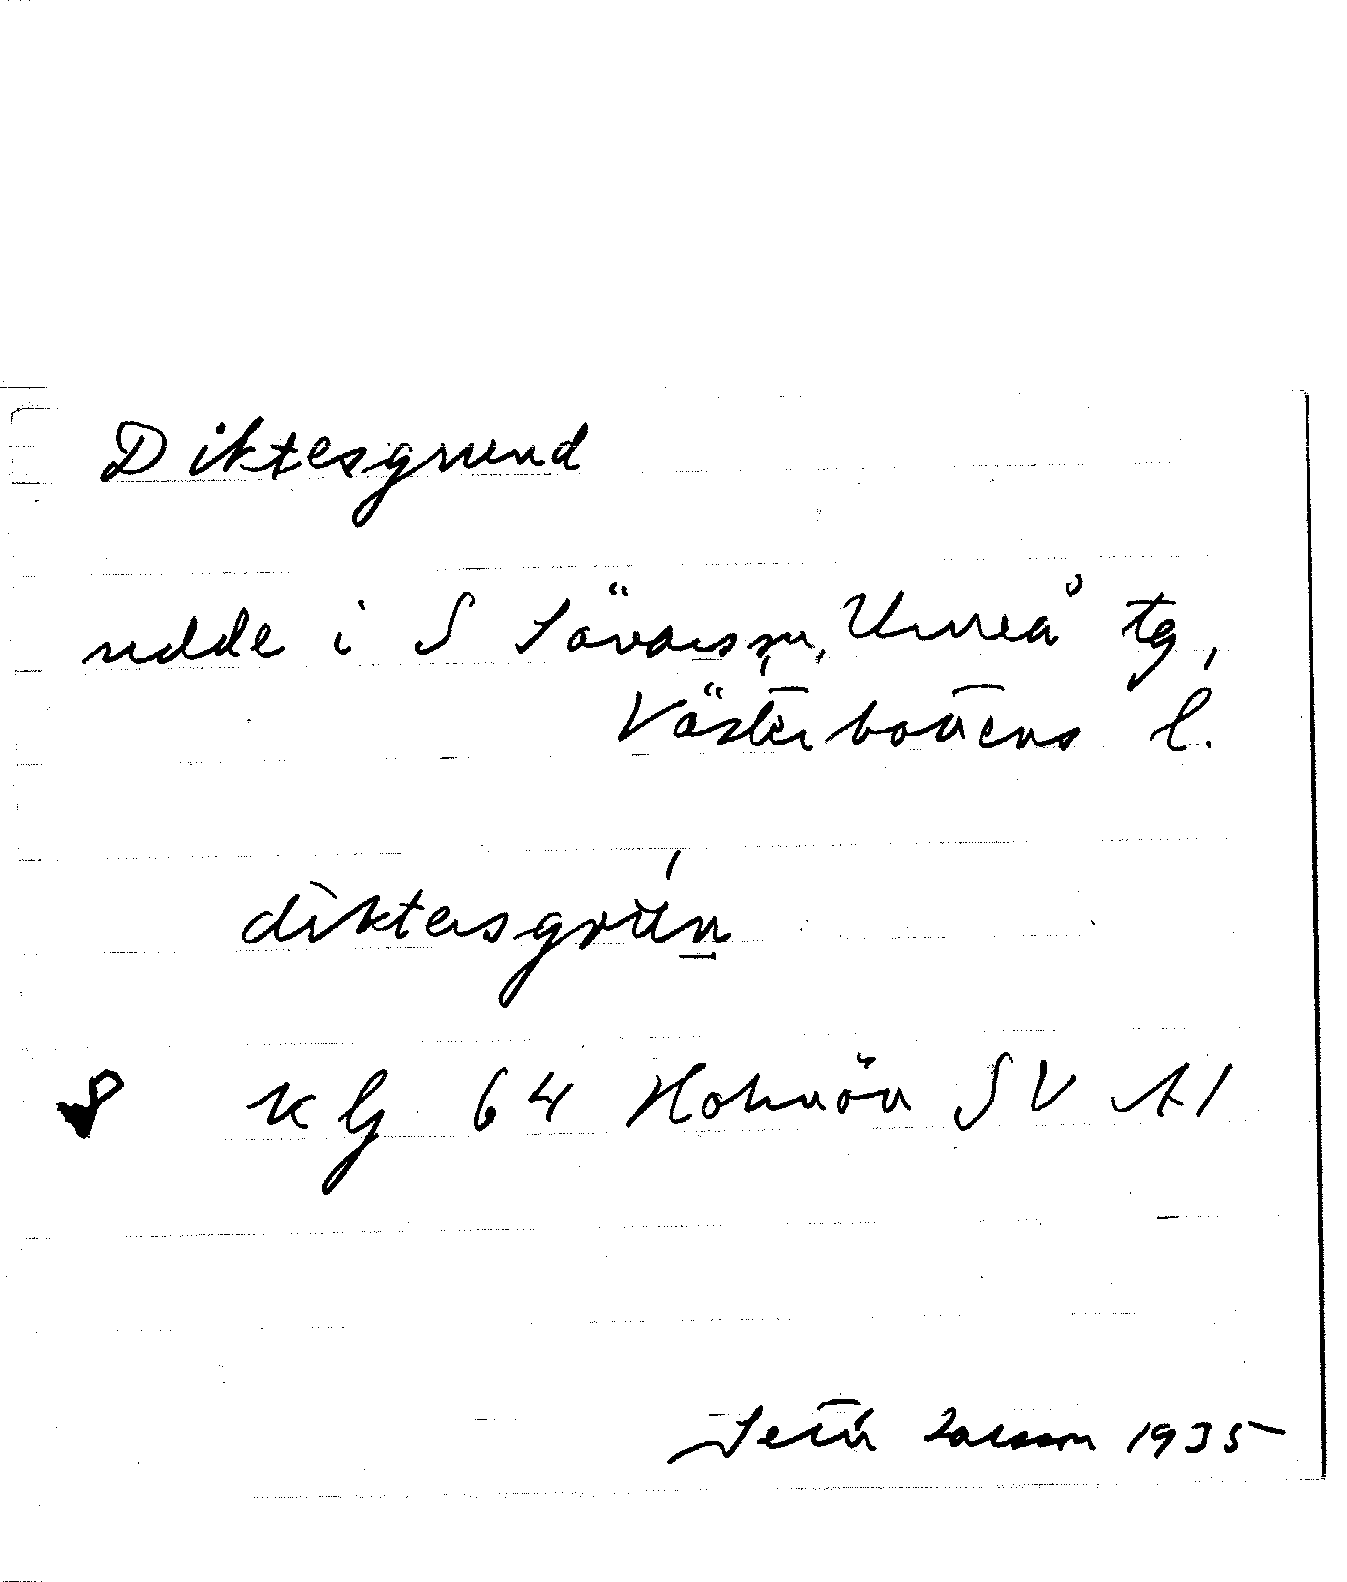 Diktesgrund
udde i S Sävars sn, Umeå tg,
Västerbottens l.
diktesgrún
klg 64 Holmön SV A1
Seth Larsson 1935